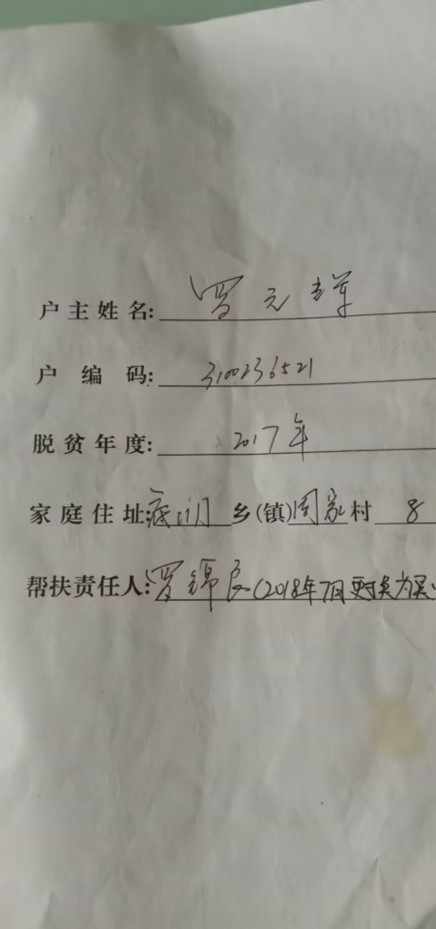 户主姓名:罗元
户编码:3100236521
脱贫年度:2017年
家庭住址: 乡(镇)周家村 8
帮扶责任人:罗锦良(2018年7月更换为